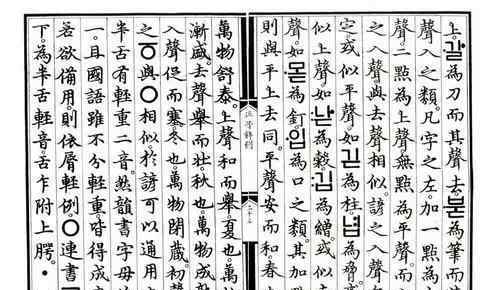 上。갈爲刀而其聲去。붇爲筆而
聲入之類。凡字之左。加一點爲
聲。二點爲上聲。無點爲平
之入聲與去聲相似。諺之入聲
定。或似平聲。如긷爲柱。녑爲脅
似上聲。如낟爲穀。깁爲繒。或似去
聲。如몯爲釘。입爲口之類。其加
則與平上去同。平聲安而和。春
正音解例
萬物舒泰。上聲和而擧。夏也。萬
漸盛。去聲擧而壯。秋也。萬物成
入聲促而塞。冬也。萬物閉藏。初
之ㆆ與ㅇ相似。於諺可以通用
半舌有輕重二音。然韻書字母
一。且國語雖不分輕重。皆得成
若欲備用。則依脣輕例。ㅇ連書
下。爲半舌輕音。舌乍附上腭。